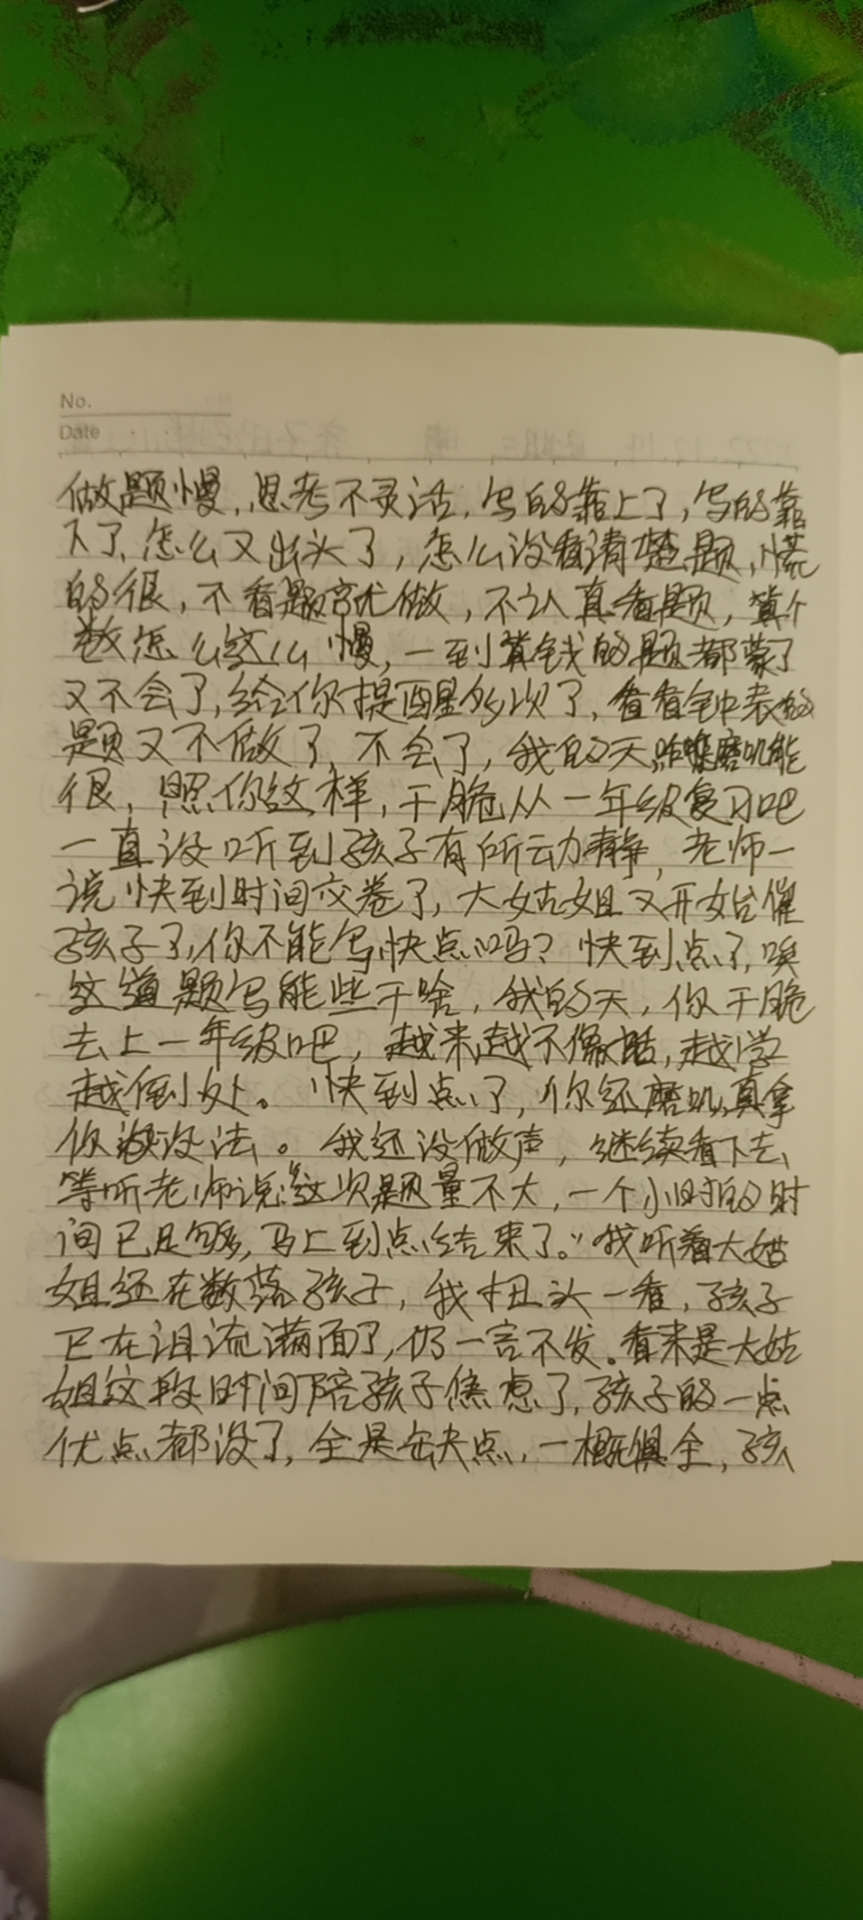 No.
Date
做题慢,思考不灵活,写的靠上了,写的靠
下了,怎么又出头了,怎么没看清楚题,慌
的很,不看题就做,不认真看题,算个
数怎么这么慢,一到算钱的题都蒙了
又不会了,给你提醒多少次了,看看钟表的
题又不做了,不会了,我的天,磨叽能
很,照你这样,干脆从一年级复习吧
一直没听到孩子有所动静,老师一
说快到时间交卷了,大姑姐又开始催
孩子了,你不能写快点吗?快到点了,唉
这道题写能些干啥,我的天,你干脆
去上一年级吧,越来越不像话,越学
越倒处。快到点了,你还磨叽,真拿
你没法。我还没做声,继续看下去,
等听老师说:“这次题量不大,一个小时的时
间已足够,马上到点结束了。”我听着大姑
姐还在数落孩子,我扭头一看,孩子
已在泪流满面了,仍一言不发。看来是大姑
姐这段时间陪孩子焦虑了,孩子的一点
优点都没了,全是缺点,一概俱全,孩